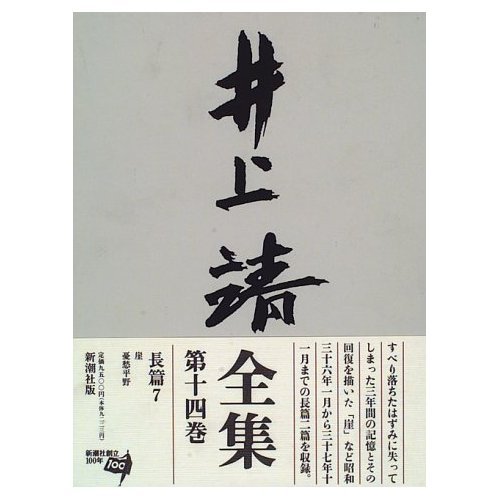 井上靖
全集
第十四巻
長篇7
崖
憂愁平野
定価九五〇〇円(本体九二二三円)
新潮社版
すべり落ちたはずみに失って
しまった三年間の記憶とその
回復を描いた「崖」など昭和
三十六年一月から三十七年十
一月までの長篇二篇を収録。
新潮社創立
100年
100